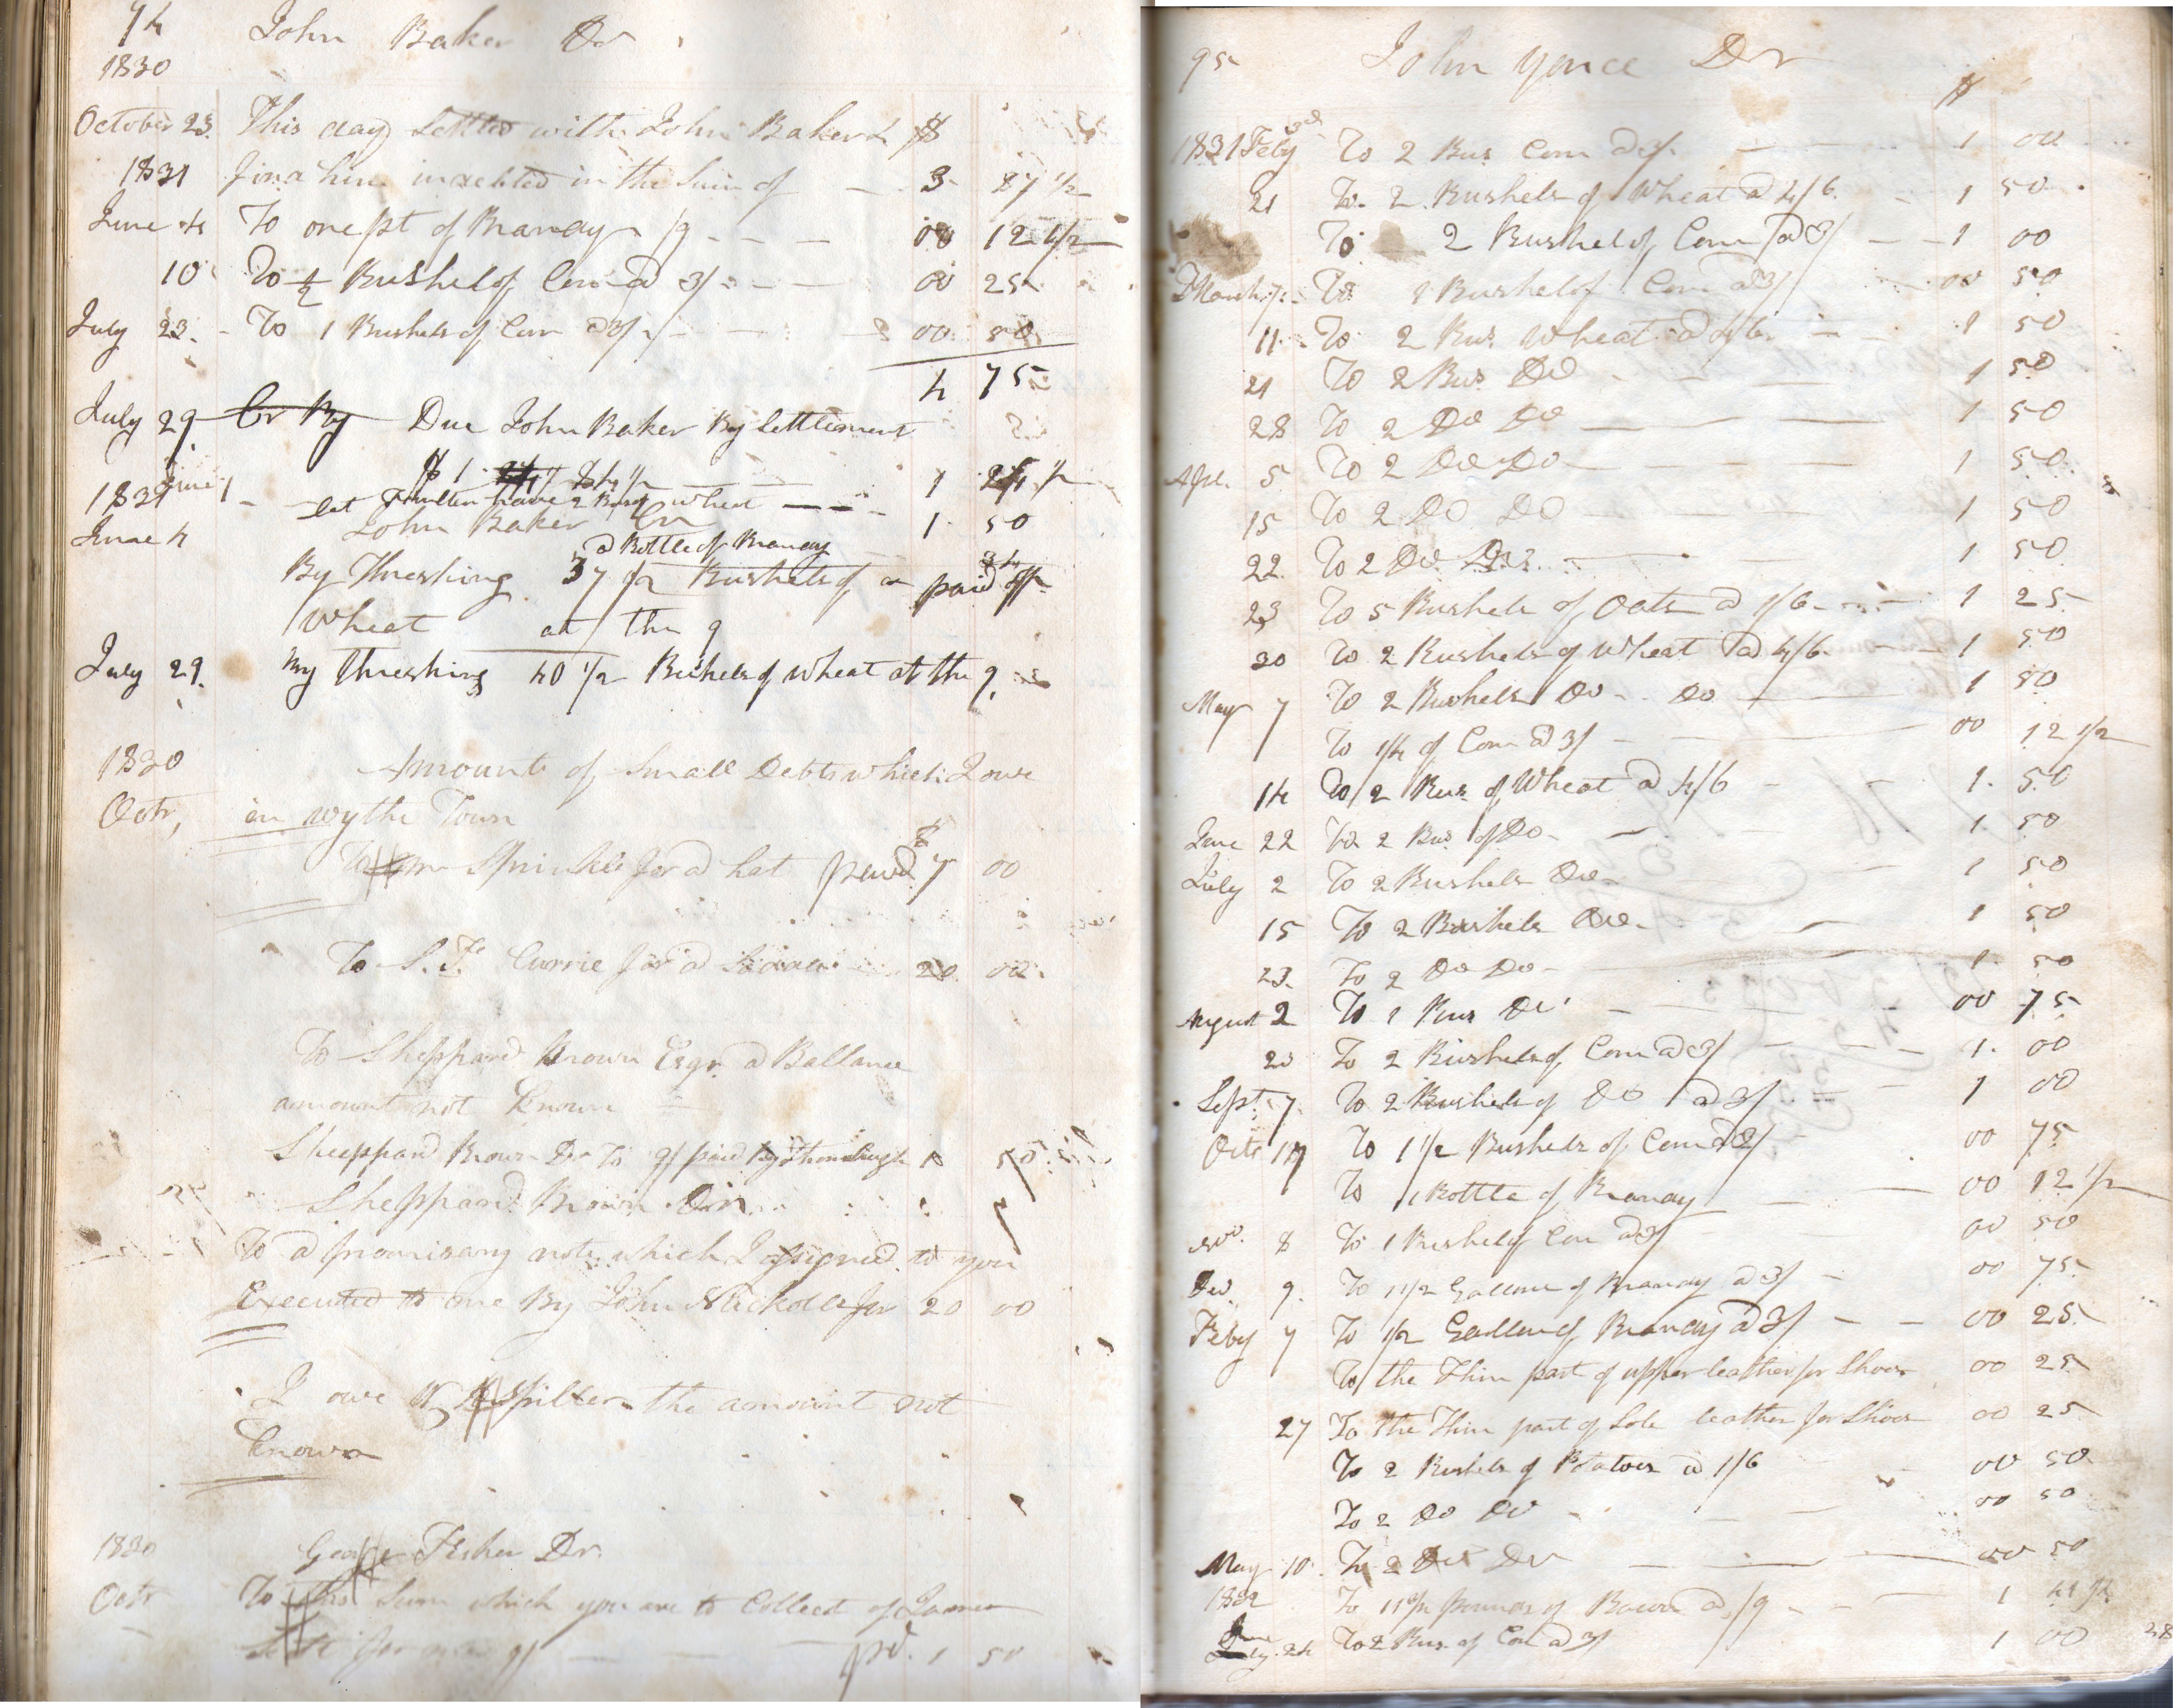 94 John Baker Dr
1830
October 23. This day Settled with John Baker & $
1831 find him indebted in the Sum of 3 87 1/2
June 4 To one pt of Brandy /9 - - - 00 12 1/2
10 To 1/2 Bushel of Corn @ 3/ - - - 00 25
July 23. - To 1 Bushels of Corn @ 3/ - - 00 50
4 75
July 29 Cr By Due John Baker By Settlement
$ 1 1 24 1/2
1831 June 1 - let have 2 Bus of wheat - - - 1 50
June 4 John Baker Cr
a Bottle of Brandy
By Threshing 37 1/2 Bushels of paid off
Wheat at the 9
July 29. By Threshing 40 1/2 Bushels of wheat at the 9
1830 Amount of Small Debts which I owe
Octr, in Wythe Town
To Sprinkle for a hat paid $ 7 00
To S. F. Currie for a 20 00
To Sheppard Brown Esqr. a Ballance
amount not known
Sheppard Brown Dr To 9/ paid by 1 50
Sheppard Brown Dr
To a promisary note which I assigned to you
Executed to me By John for 20 00
I owe Spiller the amount not
known
1830 George Fisher Dr.
Octr To this Sum which you are to Collect of James
for 9/ pd. 1 50
95 John Yonce Dr
$
1831 Feby 3d To 2 Bus Corn @ 3/ 1 00
21 To 2 Bushels of Wheat @ 4/6 - 1 50
To 2 Bushel of Corn @ 3/ - - 1 00
March 7 - To 1 Bushel of Corn @ 3/ 00 50
11 - To 2 Bus Wheat @ 4/6 - - 1 50
21 To 2 Bus Do - - 1 50
28 To 2 Do Do - - 1 50
Apl. 5 To 2 Do Do 1 50
15 To 2 Do Do 1 50
22 To 2 Do Do 1 50
23 To 5 Bushels of Oats @ 1/6 - 1 25
30 To 2 Bushels of Wheat @ 4/6 - - 1 50
May 7 To 2 Bushels Do - Do 1 50
To 1/4 of Corn @ 3/ - 00 12 1/2
14 To 2 Bus of Wheat @ 4/6 - - 1 50
June 22 To 2 Bus of Do - - 1 50
July 2 To 2 Bushels Do - 1 50
15 To 2 Bushels Do - 1 50
23. To 2 Do Do - 1 50
August 2 To 1 Bus Do 00 75
20 To 2 Bushels of Corn @ 3/ - - - 1 00
Sept. 7 To 2 Bushels of Do @ 3/ - 1 00
Octr 17 To 1 1/2 Bushels of Corn @ 3/ - 00 75
To 1 Bottle of Brandy 00 12 1/2
Nov. 8 To 1 Bushel of Corn @ 3/ 00 50
Dec. 9. To 1 1/2 Gallons of Brandy @ 3/ - 00 75
Feby 7 To 1/2 Gallon of Brandy @ 3/ - - 00 25
To the Thin part of upper leather for Shoes 00 25
27 To the Thin part of Sole leather for Shoes 00 25
To 2 Bushels of Potatoes @ 1/6 00 50
To 2 Do Do - 00 50
May 10. To 2 Do Do 00 50
1832 To 11 1/2 pounds of Bacon @ /9 - - - 1
June 24 To 2 Bus. of Corn @ 3/ 1 00